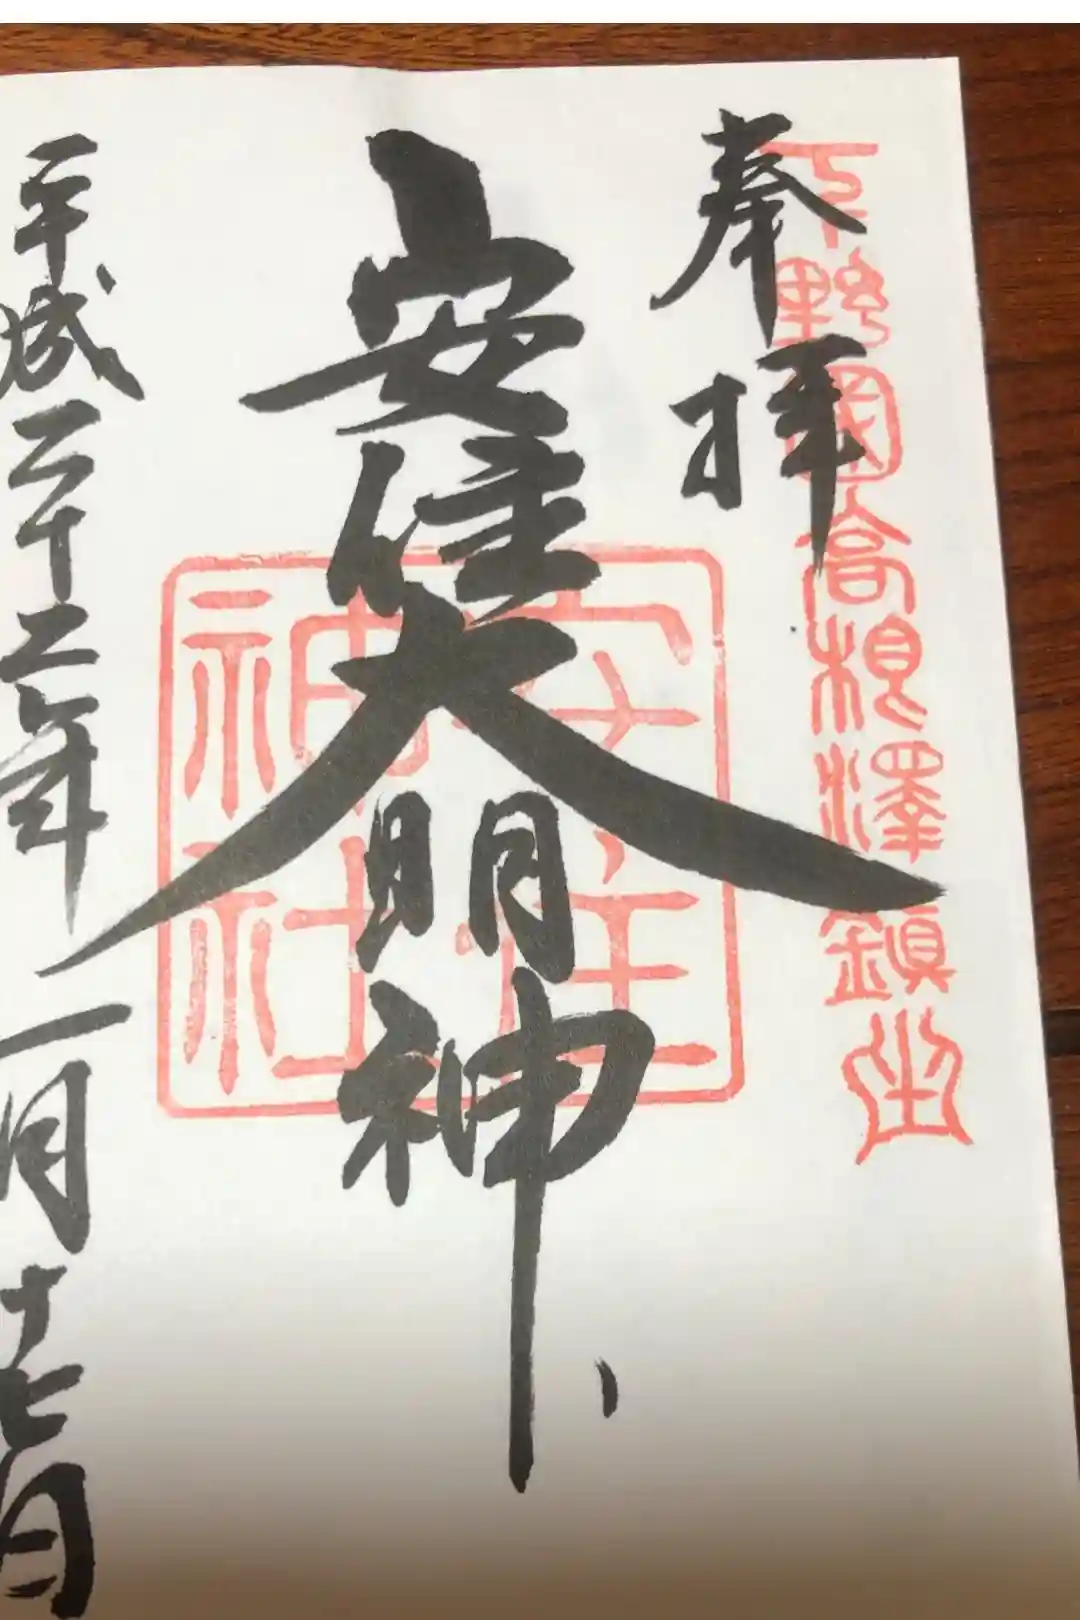 奉拝
下野國高根澤鎮坐
安住大明神
安住
神社
平成二十二年一月十七日